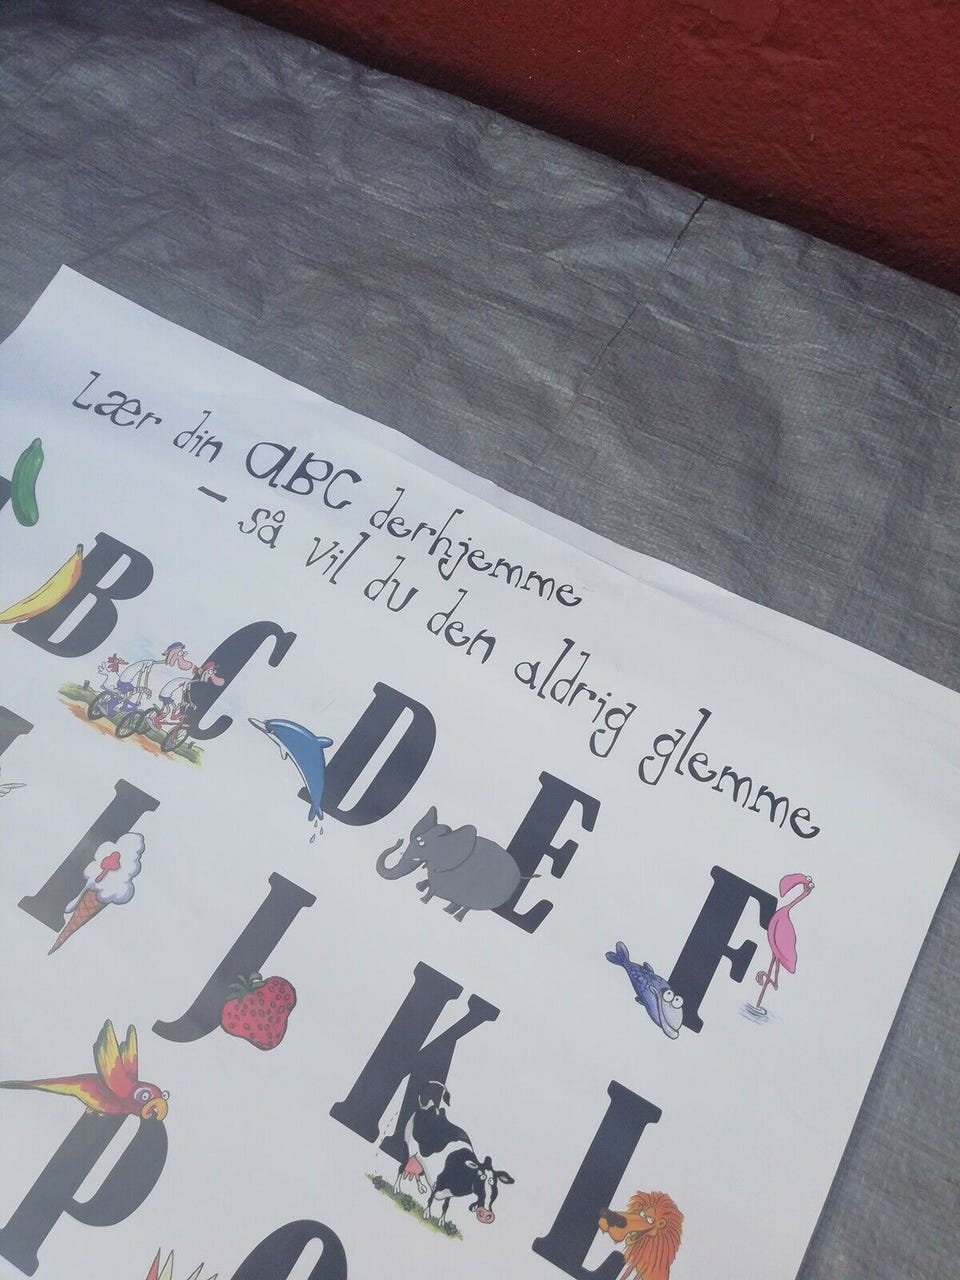 Lær din ABC derhjemme
- så vil du den aldrig glemme
B C D E F
I J K L
P